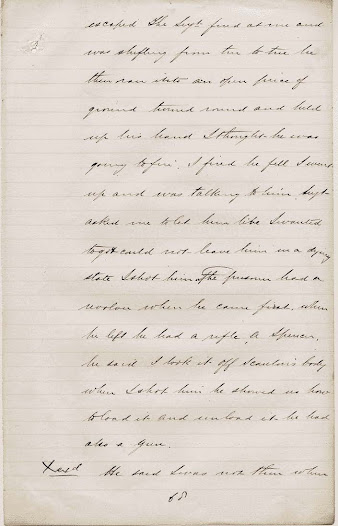 escaped The Sergt fired at me and
was shifting from tree to tree he
then ran into an open piece of
ground turned round and held
up his hand I thought he was
going to fire. I fired he fell I went
up and was talking to him. Sergt
asked me to let him live I wanted
to go & could not leave him in a dying
state I shot him. The prisoner had a
revolver when he came first, when
he left he had a rifle, a Spencer,
he said I took it off Scanlon's body
when I shot him he showed us how
to load it and unload it he had
also a gun.
Xexd He said I was not there when
68